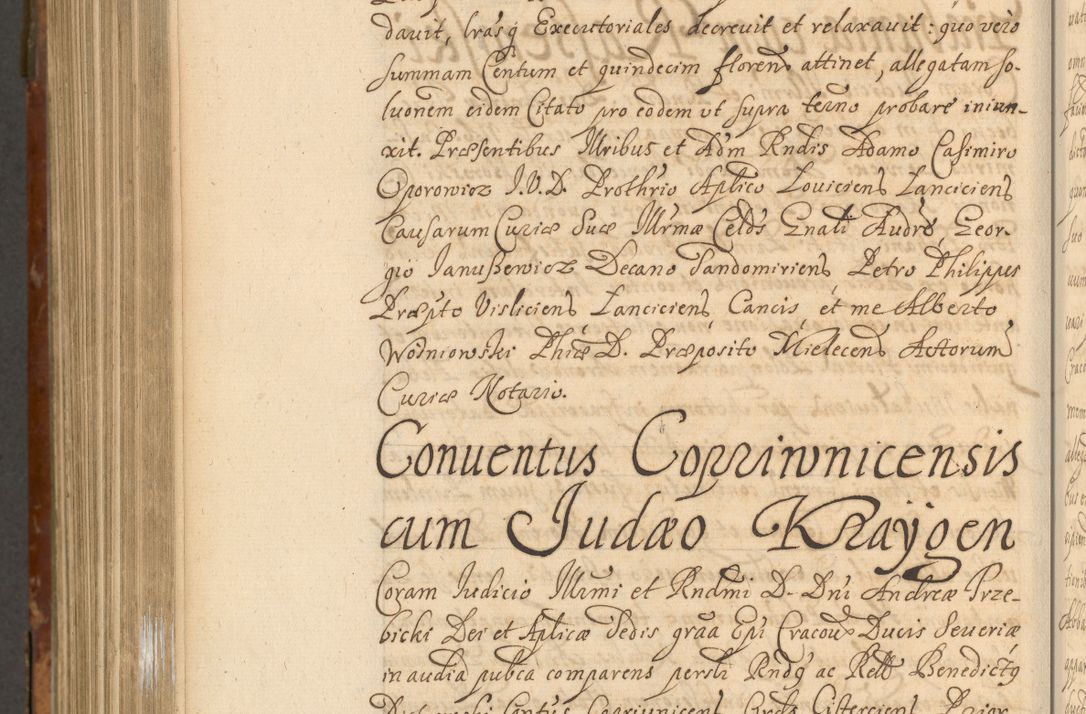 dauit, lrasq Executoriales decreuit et relaxauit: quo vero
summam Centum et quindecim florens attinet, allegatam so-
luonem eidem Citato pro eodem ut supra terno probare iniun-
xit. Præsentibus Illribus et Adm Rndis Adamo Casimiro
Oporowicz I.V.D. Prothrio Aplico Louiciens Lanciciens
Causarum Curiæ Suæ Illrmæ Celds Gnali Audre, Geor-
gio Ianuszewicz Decano Sandomiriens Petro Philippes
Præpto Visliciens Lanciciens Cancis et me Alberto
Wosniowski Phiæ D. Præposito Mielecens Actorum
Curiæ Notario.
Conuentus Coprziwnicensis
cum Iudæo Kraÿgen
Coram Iudicio Illrmi et Rndmi D. Dni Andreæ Trze-
bicki Dei et Aplicæ Sedis graa Epi Cracou Ducis Seueriæ
in audia pubca comparens persli Rndq ac Rell Benedictq
Contus Copriunicens Ordis Cisterciens Prior